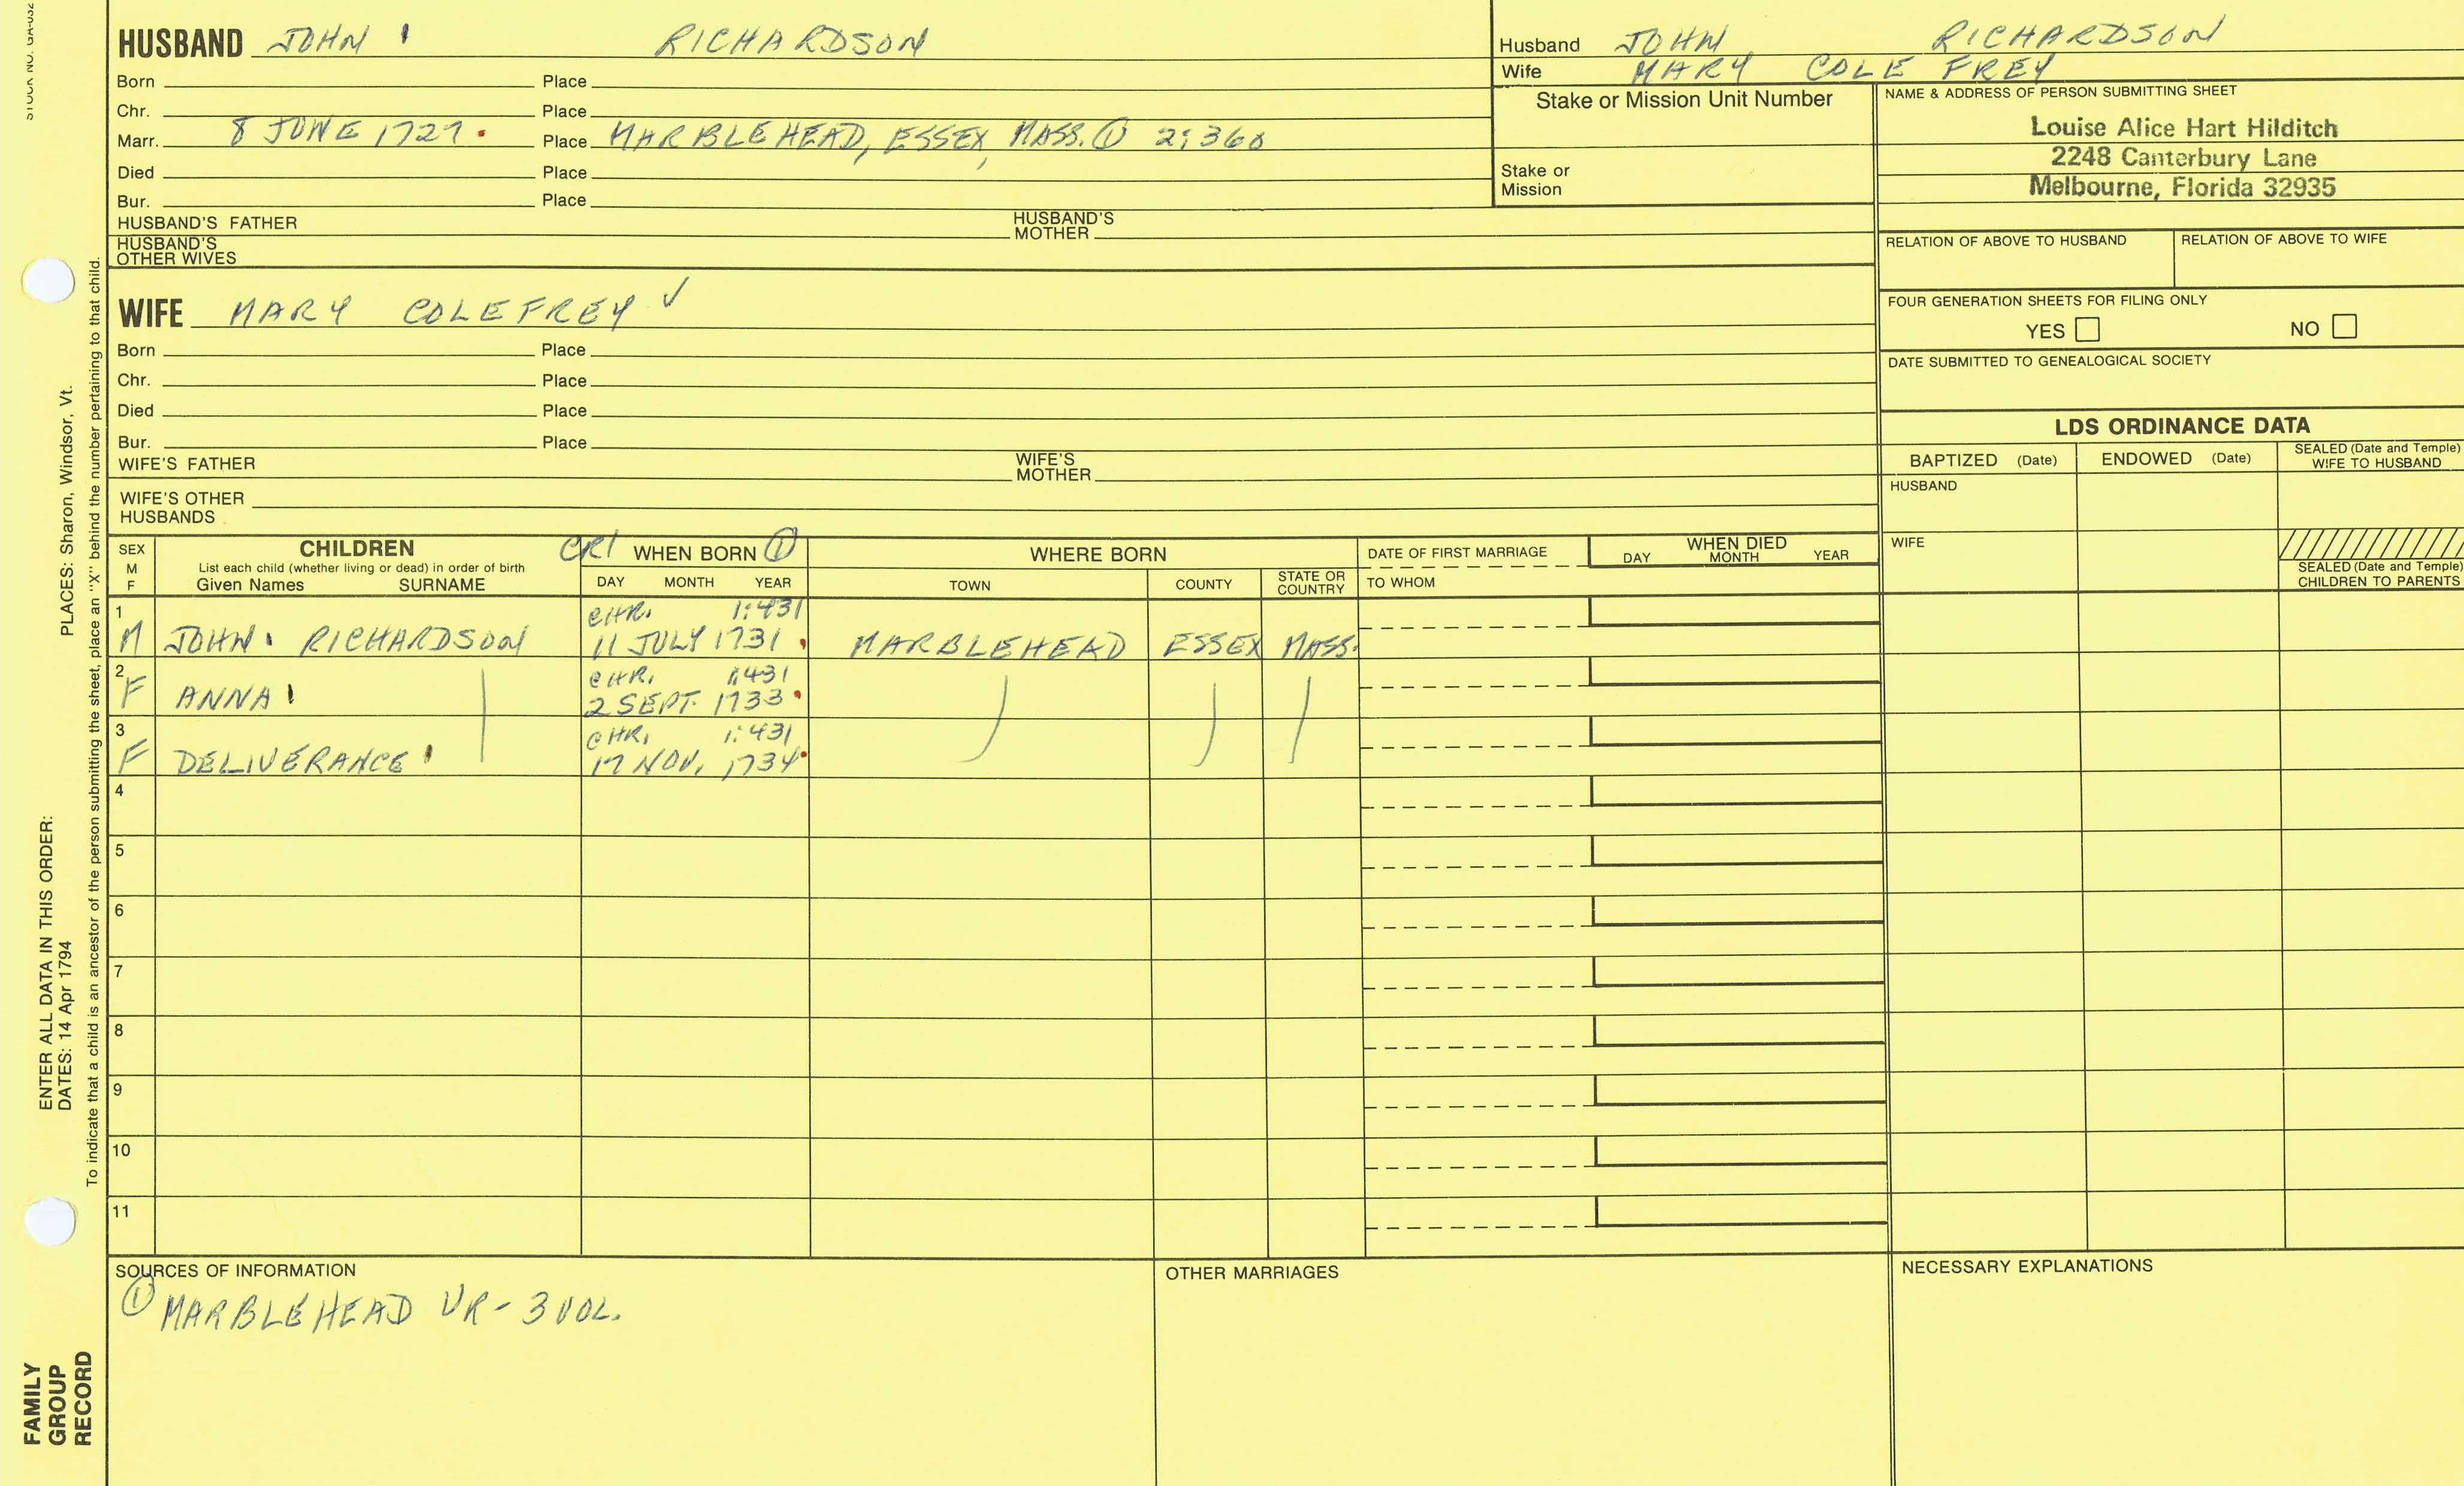 STOCK NO. GA-032
HUSBAND JOHN RICHARDSON
Born Place
Chr. Place
Marr. 8 JUNE 1727. Place MARBLEHEAD, ESSEX, MASS. ① 2:360
Died Place
Bur. Place
HUSBAND'S FATHER HUSBAND'S MOTHER
HUSBAND'S OTHER WIVES
WIFE MARY COLEFREY ✓
Born Place
Chr. Place
Died Place
Bur. Place
WIFE'S FATHER WIFE'S MOTHER
WIFE'S OTHER HUSBANDS
Husband JOHN RICHARDSON
Wife MARY COLE FREY
Stake or Mission Unit Number
Stake or Mission
NAME & ADDRESS OF PERSON SUBMITTING SHEET
Louise Alice Hart Hilditch
2248 Canterbury Lane
Melbourne, Florida 32935
RELATION OF ABOVE TO HUSBAND RELATION OF ABOVE TO WIFE
FOUR GENERATION SHEETS FOR FILING ONLY
YES NO
DATE SUBMITTED TO GENEALOGICAL SOCIETY
LDS ORDINANCE DATA
BAPTIZED (Date) ENDOWED (Date) SEALED (Date and Temple) WIFE TO HUSBAND
HUSBAND
WIFE
SEALED (Date and Temple) CHILDREN TO PARENTS
SEX M F
CHILDREN
List each child (whether living or dead) in order of birth
Given Names SURNAME
CR1 WHEN BORN ①
DAY MONTH YEAR
WHERE BORN
TOWN COUNTY STATE OR COUNTRY
DATE OF FIRST MARRIAGE
TO WHOM
WHEN DIED
DAY MONTH YEAR
1 CHR. 1:431
M JOHN RICHARDSON 11 JULY 1731 MARBLEHEAD ESSEX MASS.
2 CHR. 1:431
F ANNA 2 SEPT. 1733
3 CHR. 1:431
F DELIVERANCE 17 NOV. 1734
4
5
6
7
8
9
10
11
SOURCES OF INFORMATION
① MARBLEHEAD VR - 3 VOL.
OTHER MARRIAGES
NECESSARY EXPLANATIONS
PLACES: Sharon, Windsor, Vt.
To indicate that a child is an ancestor of the person submitting the sheet, place an "X" behind the number pertaining to that child.
ENTER ALL DATA IN THIS ORDER:
DATES: 14 Apr 1794
FAMILY
GROUP
RECORD